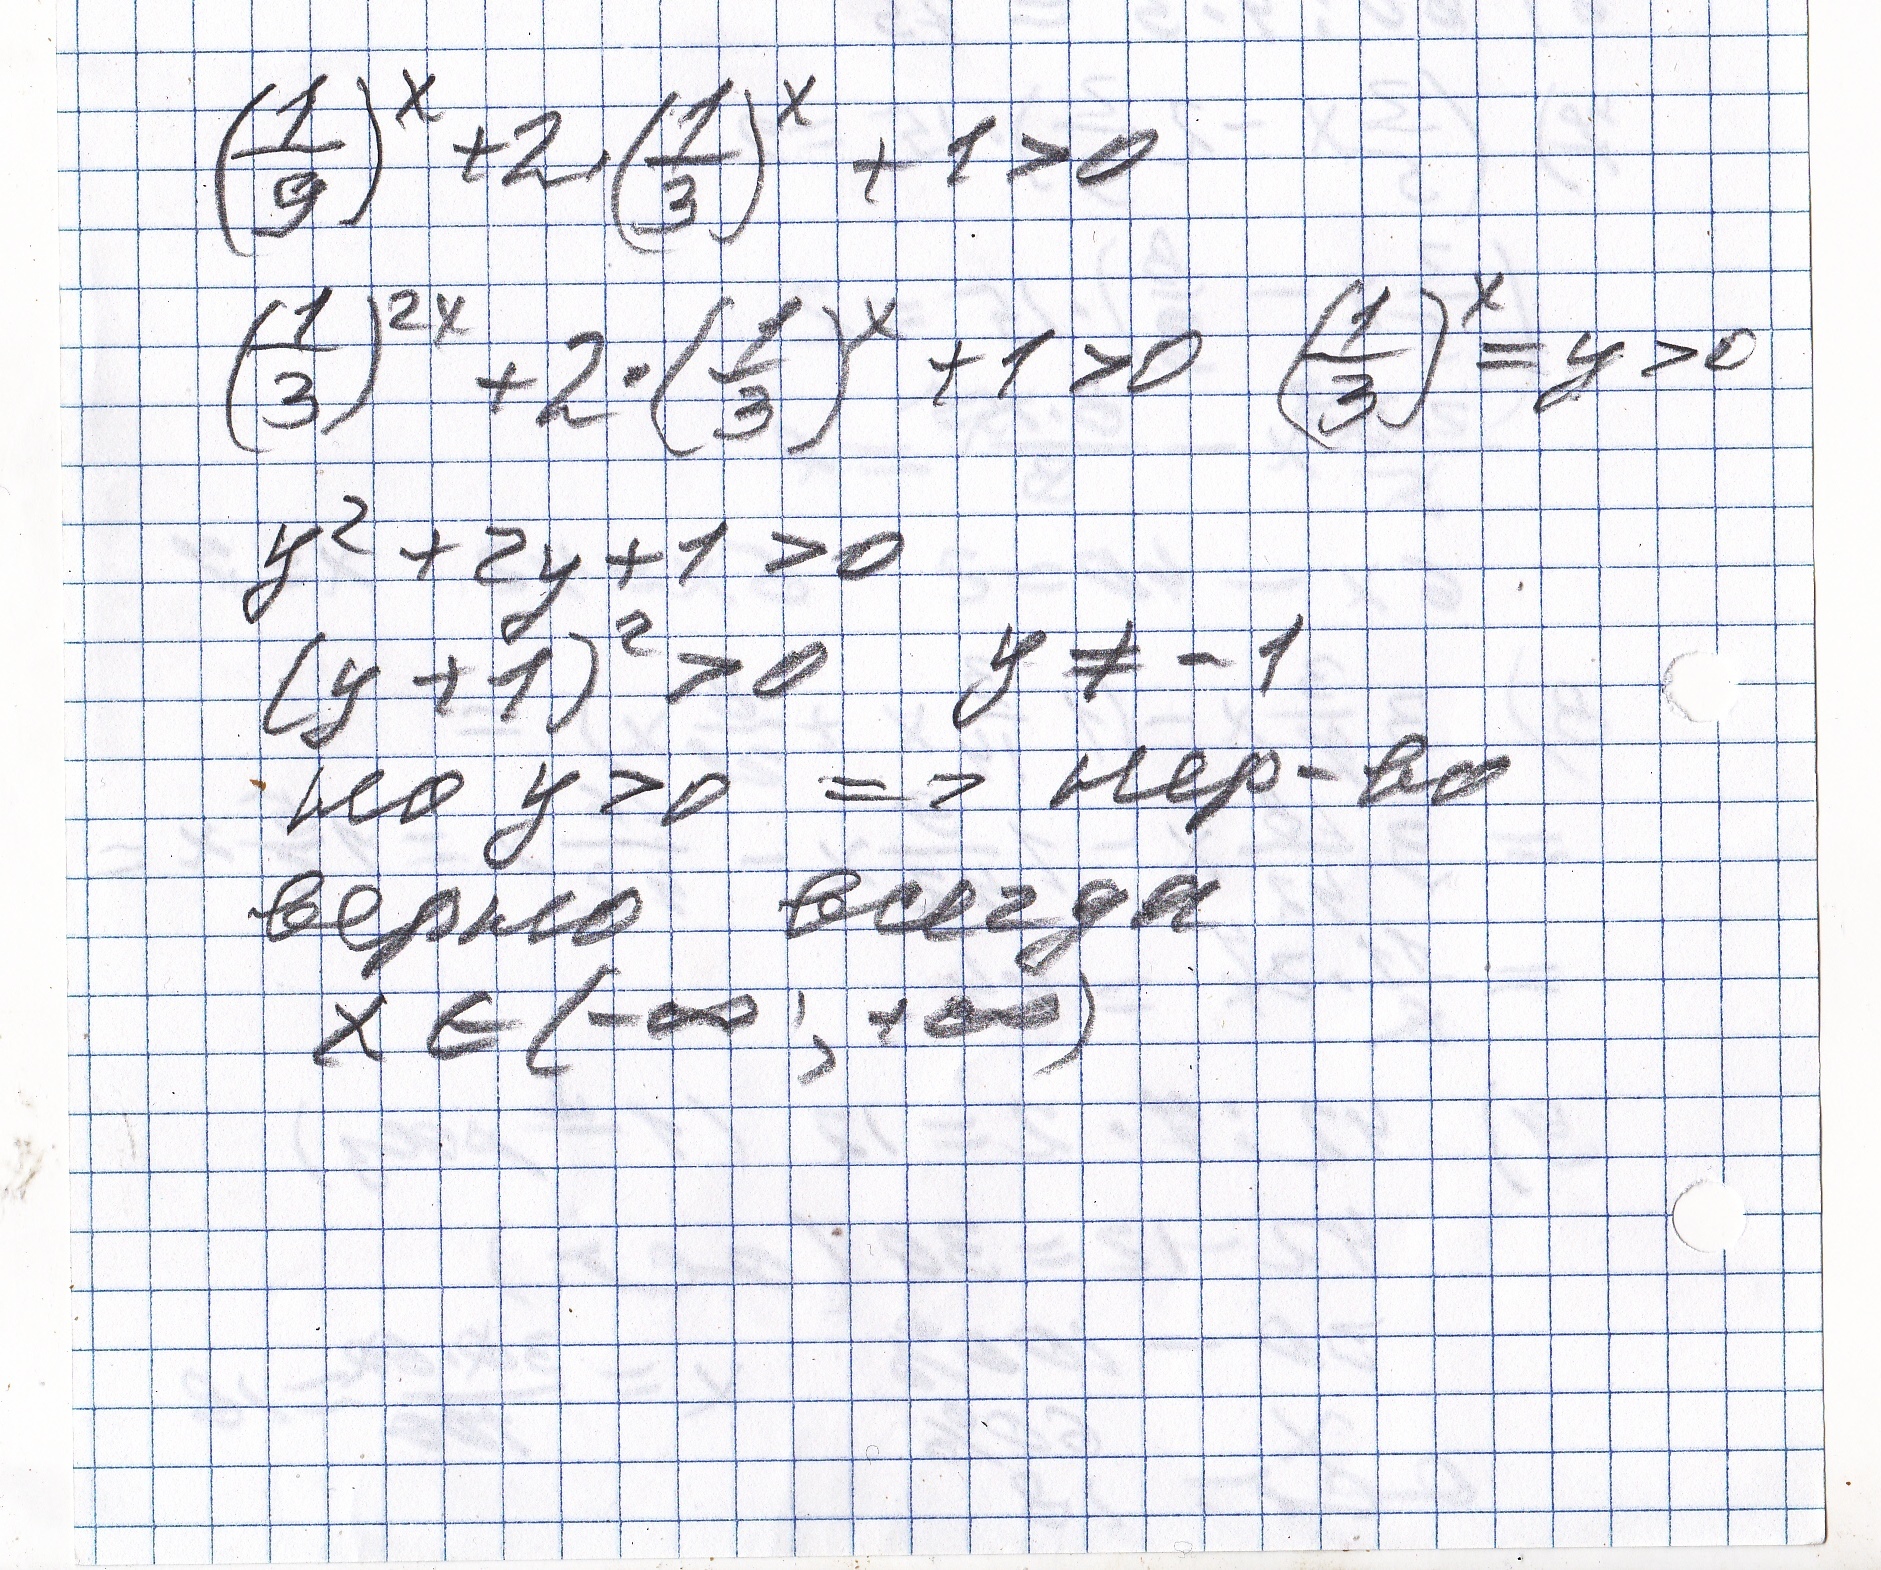 (1/9)^x + 2·(1/3)^x + 1 > 0
(1/3)^2x + 2·(1/3)^x + 1 > 0 (1/3)^x = y > 0
y² + 2y + 1 > 0
(y + 1)² > 0 y ≠ -1
но y > 0 => нер-во
верно всегда
x ∈ (-∞; +∞)